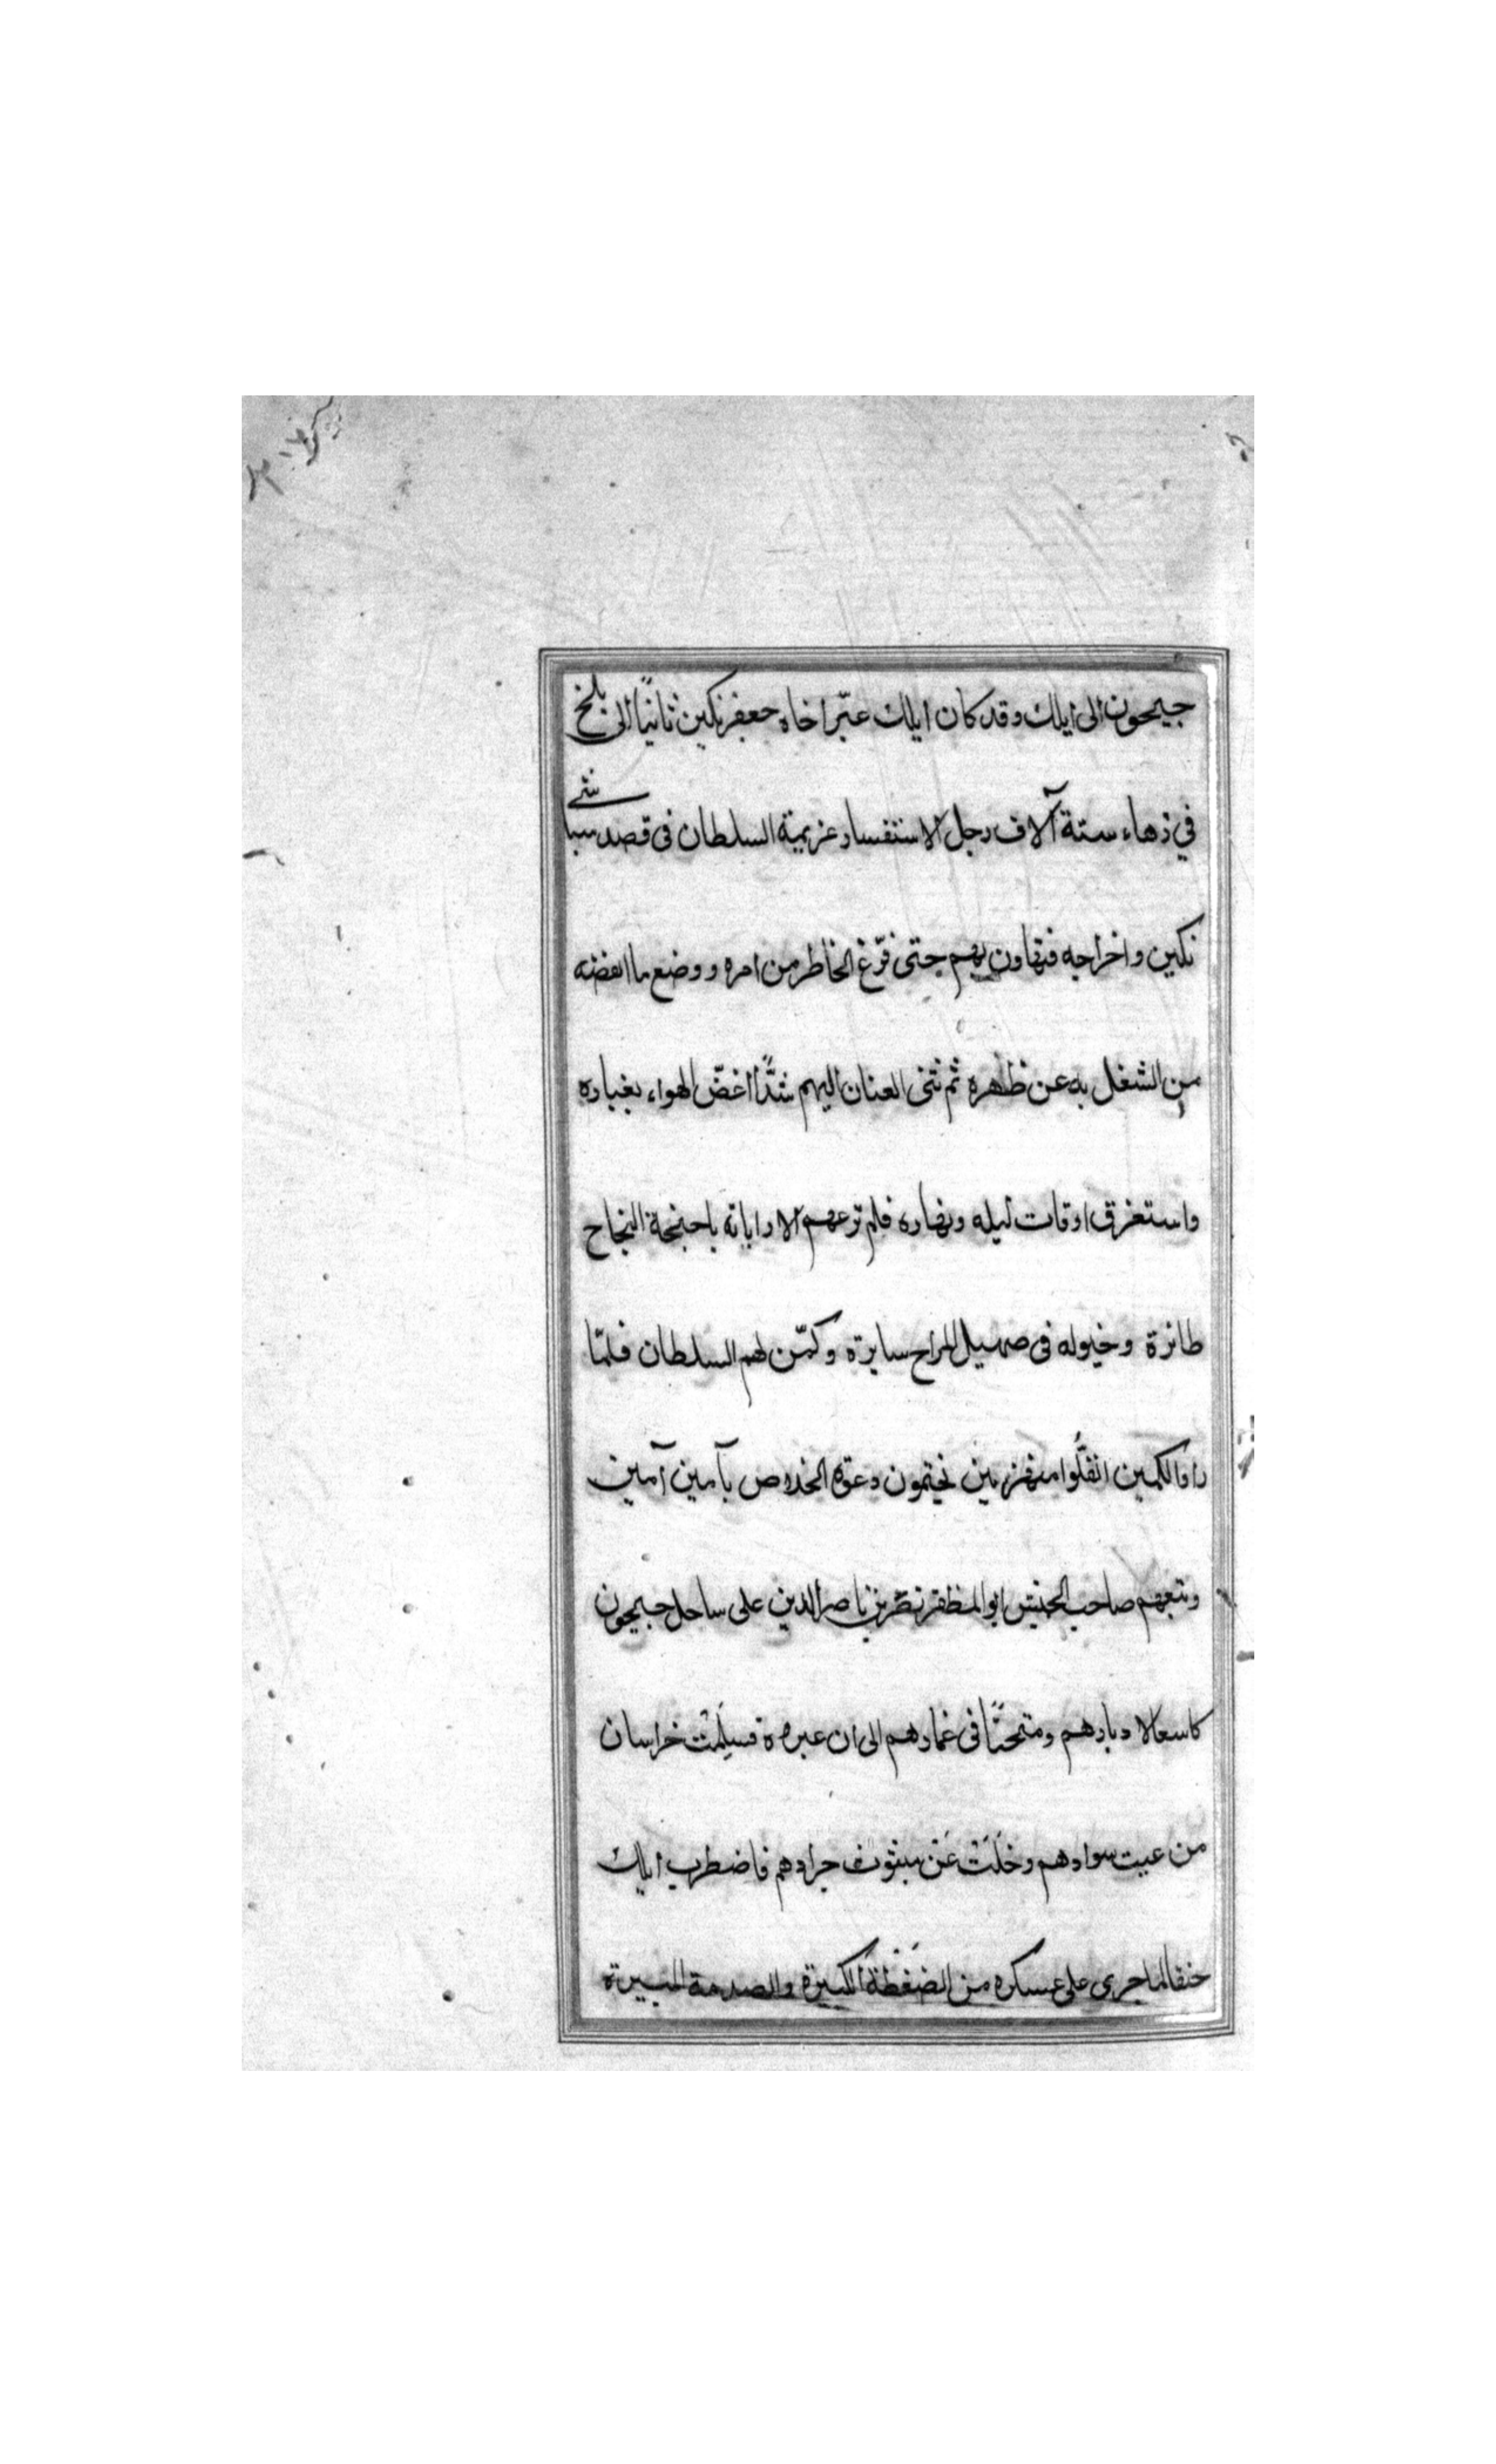 جيحون الى ايلك وقد كان ايلك عبّر اخاه جعفر تكين ثانيًا الى بلخ
في زهاء ستة آلاف رجل لاستفساد عزيمة السلطان فى قصد سباشى
تكين واخراجه فتهاون بهم حتى فرّغ الخاطر من امره ووضع ما انقضه
من الشغل به عن ظهره ثم ثنى العنان اليهم شدًّا اغصّ الهواء بغباره
واستغرق اوقات ليله ونهاره فلم ترعهم الا راياته باجنحة النجاح
طائرة وخيوله فى صهيل المراح سايرة وكمّن لهم السلطان فلمّا
راوا الكمين انفلّوا منهزمين يختمون دعوة الخلاص بآمين آمين
وتبعهم صاحب الجيش ابو المظفر نصر بن ناصر الدين على ساحل جيحون
كاسعا لادبارهم ومتمحنًا فى غمارهم الى ان عبروه فسلمت خراسان
من عيث سوادهم وخلت عن مبثوث جرادهم فاضطرب ايلك
حنقا لما جرى على عسكره من الضغطة الكبيرة والصدمة المبيرة